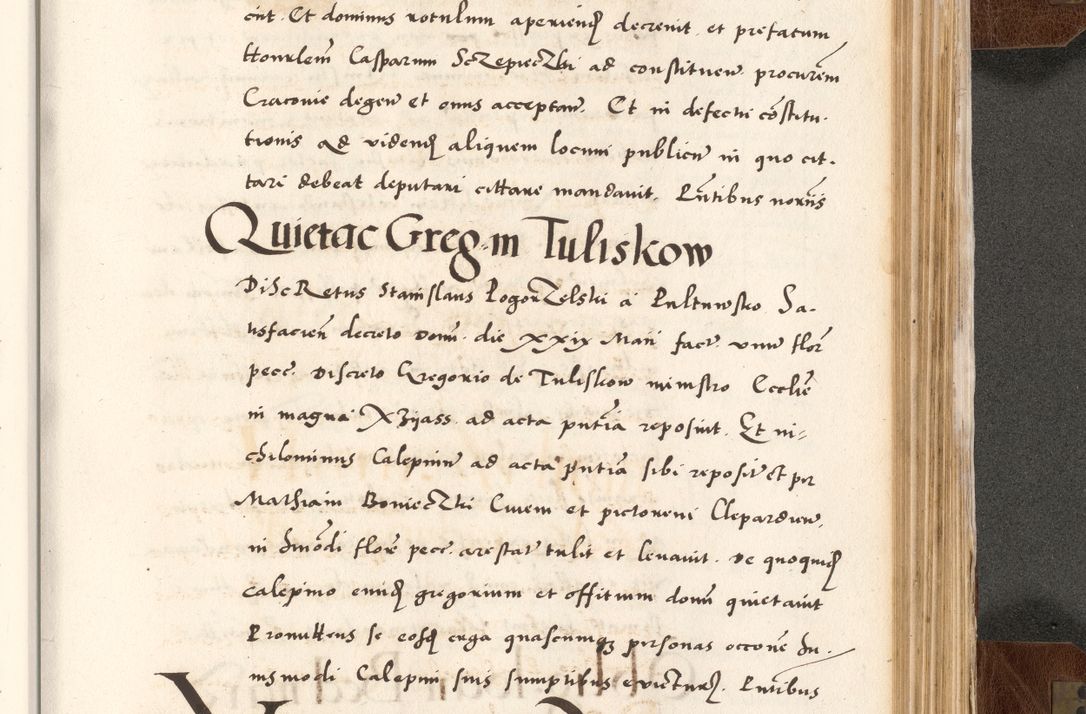 cit. Et dominus rotulum aperiend decrevit et prefatum
Honrlem Casparum Sczepieczki ad constituen procurem
Cracovie degen et onus acceptan. Et in defectu constitu-
tionis ad vidend aliquem locum publicu in quo cit-
tari debeat deputari cittare mandavit. Pntibus nornis
Quietac Greg. in Tuliskow
Discretus Stanislaus Pogorzelski a Pultuwsko Sa-
tisfacien decreto Domi. die xxix Maii fact. unu flor
pecc. Discreto Gregorio de Tuliskow ministro Ecclie
in magna Xzijass ad acta pntia reposuit. Et ni-
chilominus Calepinu ad acta pntia sibi reposit et per
Mathiam Bonieczki Civem et pictorem Clepardien.
in hmodi flore pecc. arestat tulit et levavit. De quoquid
calepino eundem gregorium et offitium domi quietavit
Promittens se eosd erga quascumq personas occone hu-
iusmodi Calepini suis sumptibus evictur. Pntibus